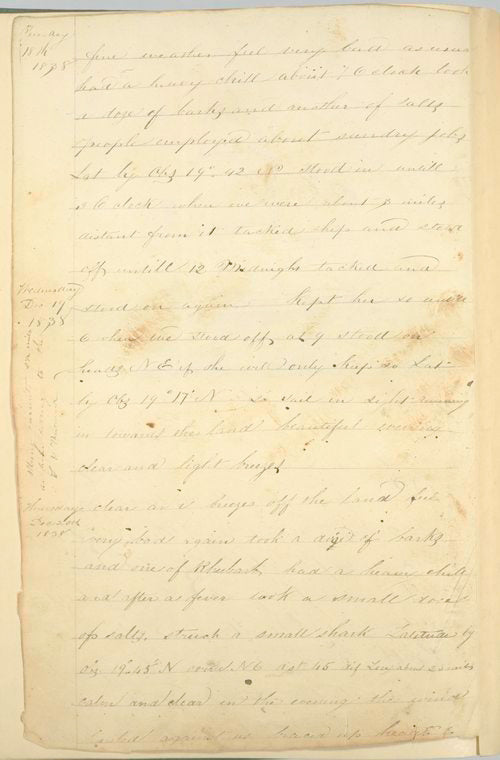 Tuesday
18th
1838
fine weather feel very bad as usual
had a heavy chill about 6 oclock took
a dose of barks and another of salts
people employed about sundry jobs
Lat by Obs 19° 42 No stood in untill
6 Oclock when we were about 3 miles
distant from it tacked ship and stood
off untill 12 Midnight tacked and
Wednesday
Dec 19
1838
stood on again Kept her so untill
6 when we stood off, at 9 stood on
heads N E if she will only keep so Lat
by Obs 19° 17' N no sail in sight running
in towards the land beautiful evening
clear and light breezes
Thursday
Dec 20th
1838
clear air & breezes off the land feel
very bad again took a dose of barks
and one of Rhubarb, had a heavy chill
and after a fever took a small dose
of salts, struck a small shark Latitude by
Obs 19° 45' N 
calm and clear in the evening the wind
hauled against us braced up